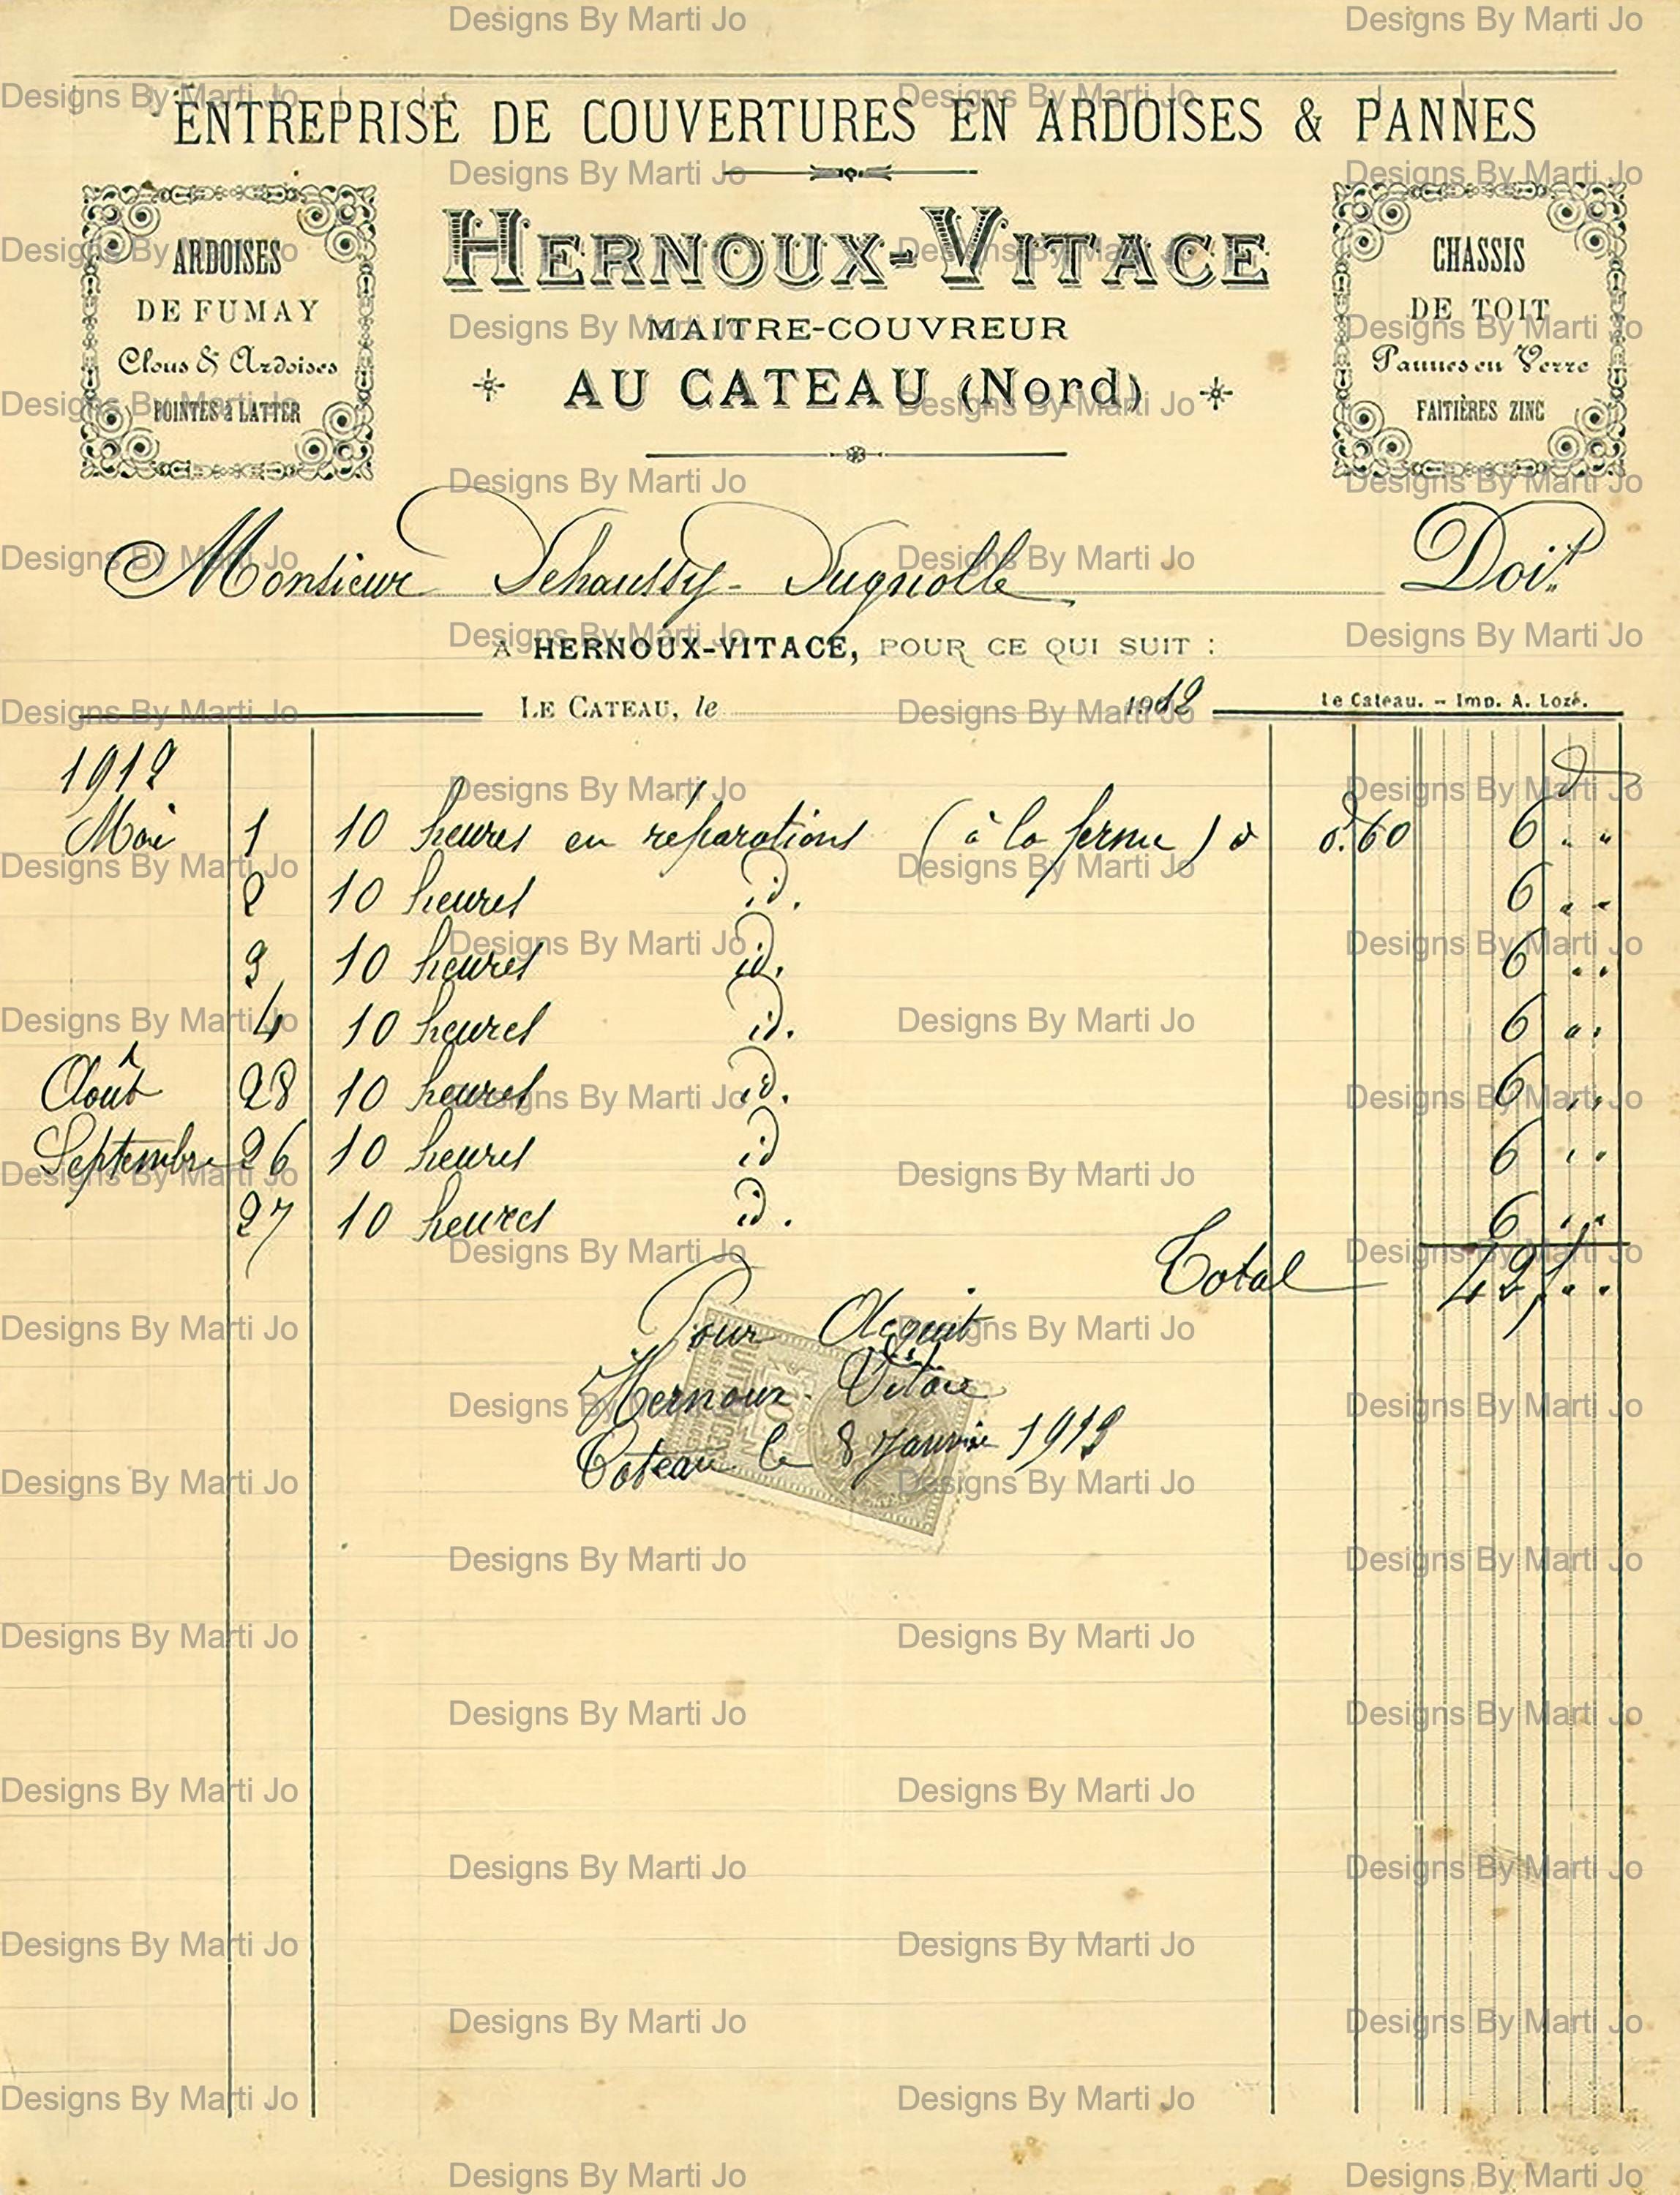 ENTREPRISE DE COUVERTURES EN ARDOISES & PANNES
ARDOISES
DE FUMAY
Clous & Ardoises
POINTES à LATTER
HERNOUX-VITACE
MAITRE-COUVREUR
AU CATEAU (Nord)
CHASSIS
DE TOIT
Pannes en Verre
FAITIÈRES ZINC
Monsieur Dehaussy-Dugnolle Doit
A HERNOUX-VITACE, POUR CE QUI SUIT :
LE CATEAU, le 1912
Le Cateau. - Imp. A. Lozé.
1912
Mai 1 10 heures en réparations (à la ferme) à 0.60 6 " "
2 10 heures id. 6 " "
3 10 heures id. 6 " "
4 10 heures id. 6 " "
Août 28 10 heures id. 6 " "
Septembre 26 10 heures id 6 " "
27 10 heures id. 6 " "
Total 42, " "
Pour Acquit
Hernoux-Vitace
Cateau le 8 Janvier 1913
Designs By Marti Jo